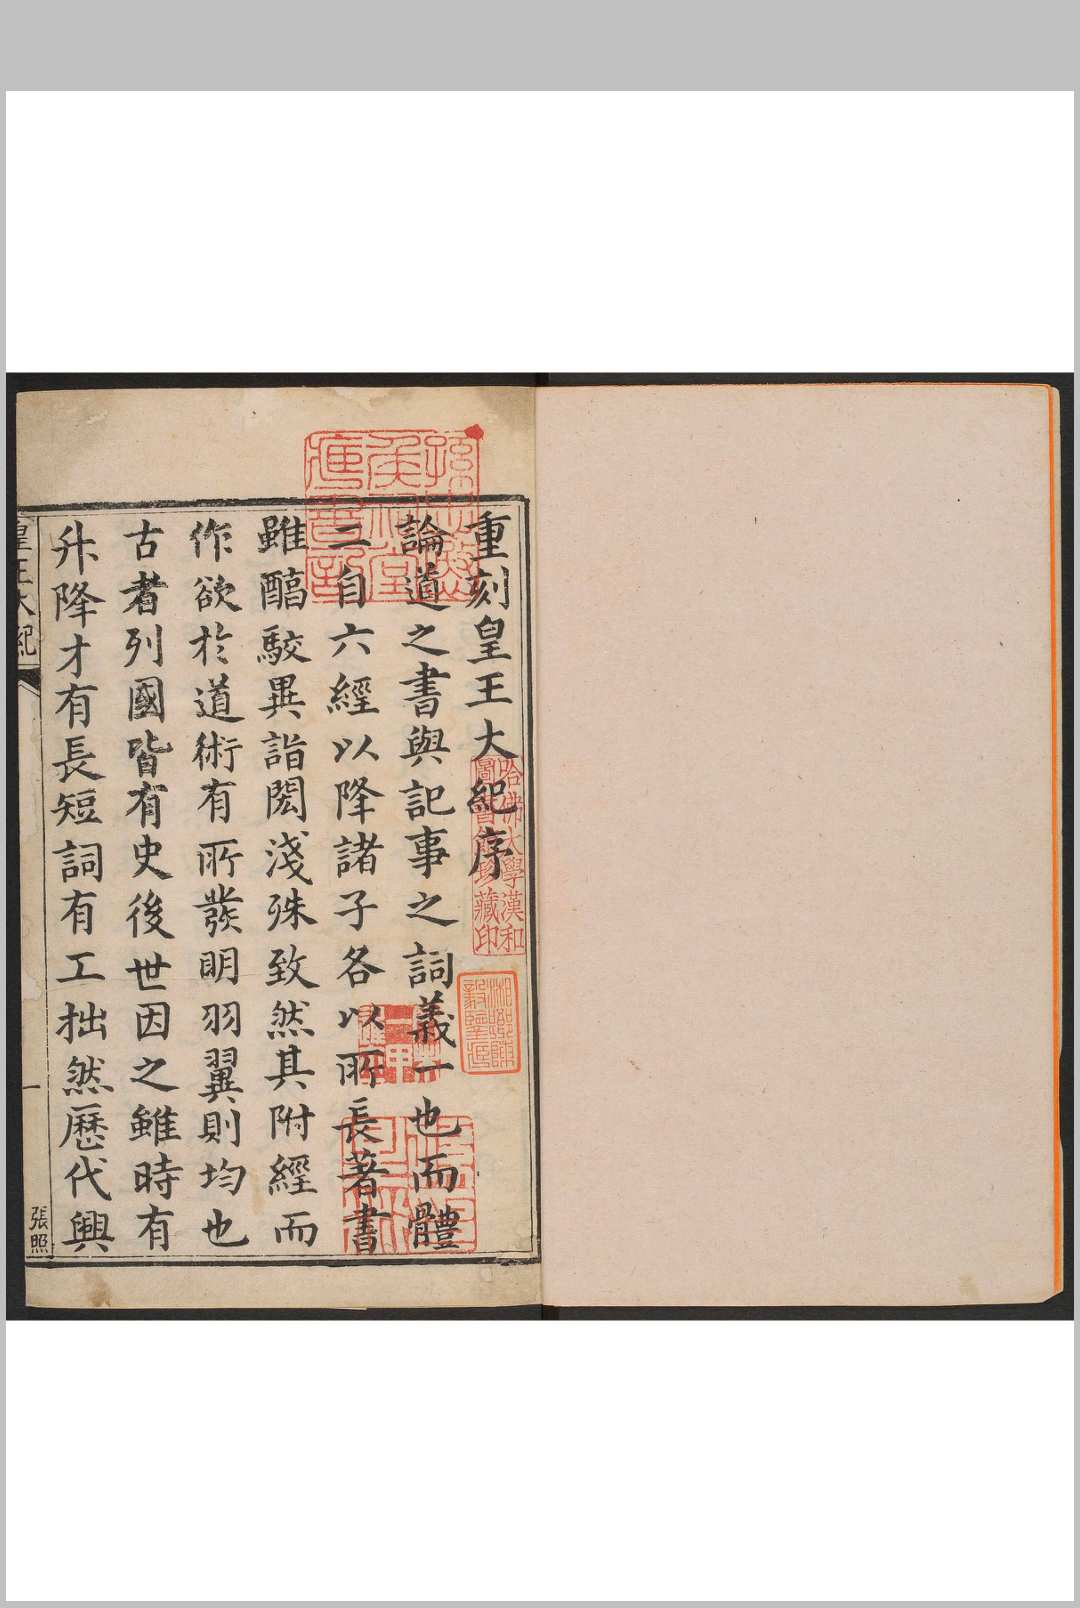 重刻皇王大紀序
論道之書與記事之詞義一也而體
二自六經以降諸子各以所長著書
雖醕駁異詣閎淺殊致然其附經而
作欲於道術有所發明羽翼則均也
古者列國皆有史後世因之雖時有
升降才有長短詞有工拙然歷代興
皇王大紀
一
張照
哈佛大學漢和
圖書館珍藏印